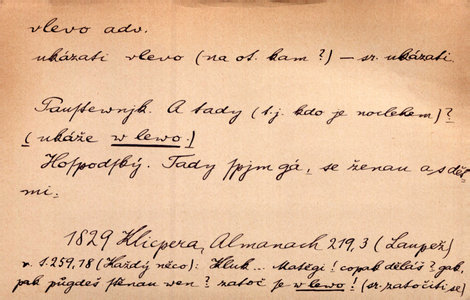 vlevo adv.
ukázati vlevo (na ot. kam?) – sr. ukázati.
Pauſtewnjk. A tady (t.j. kdo je noclehem)?
(ukáže wlewo.)
Hoſpodſký. Tady ſpjm gá, se ženau a s dět-
mi.
1829 Klicpera, Almanach 219,3 (Laupež)
v. s. 259,18 (Každý něco): Kluk... Matěgi! copak děláš? gak,
pak půgdeš ſtěnau wen? zatoč je wlewo! (sr. zatočiti se)